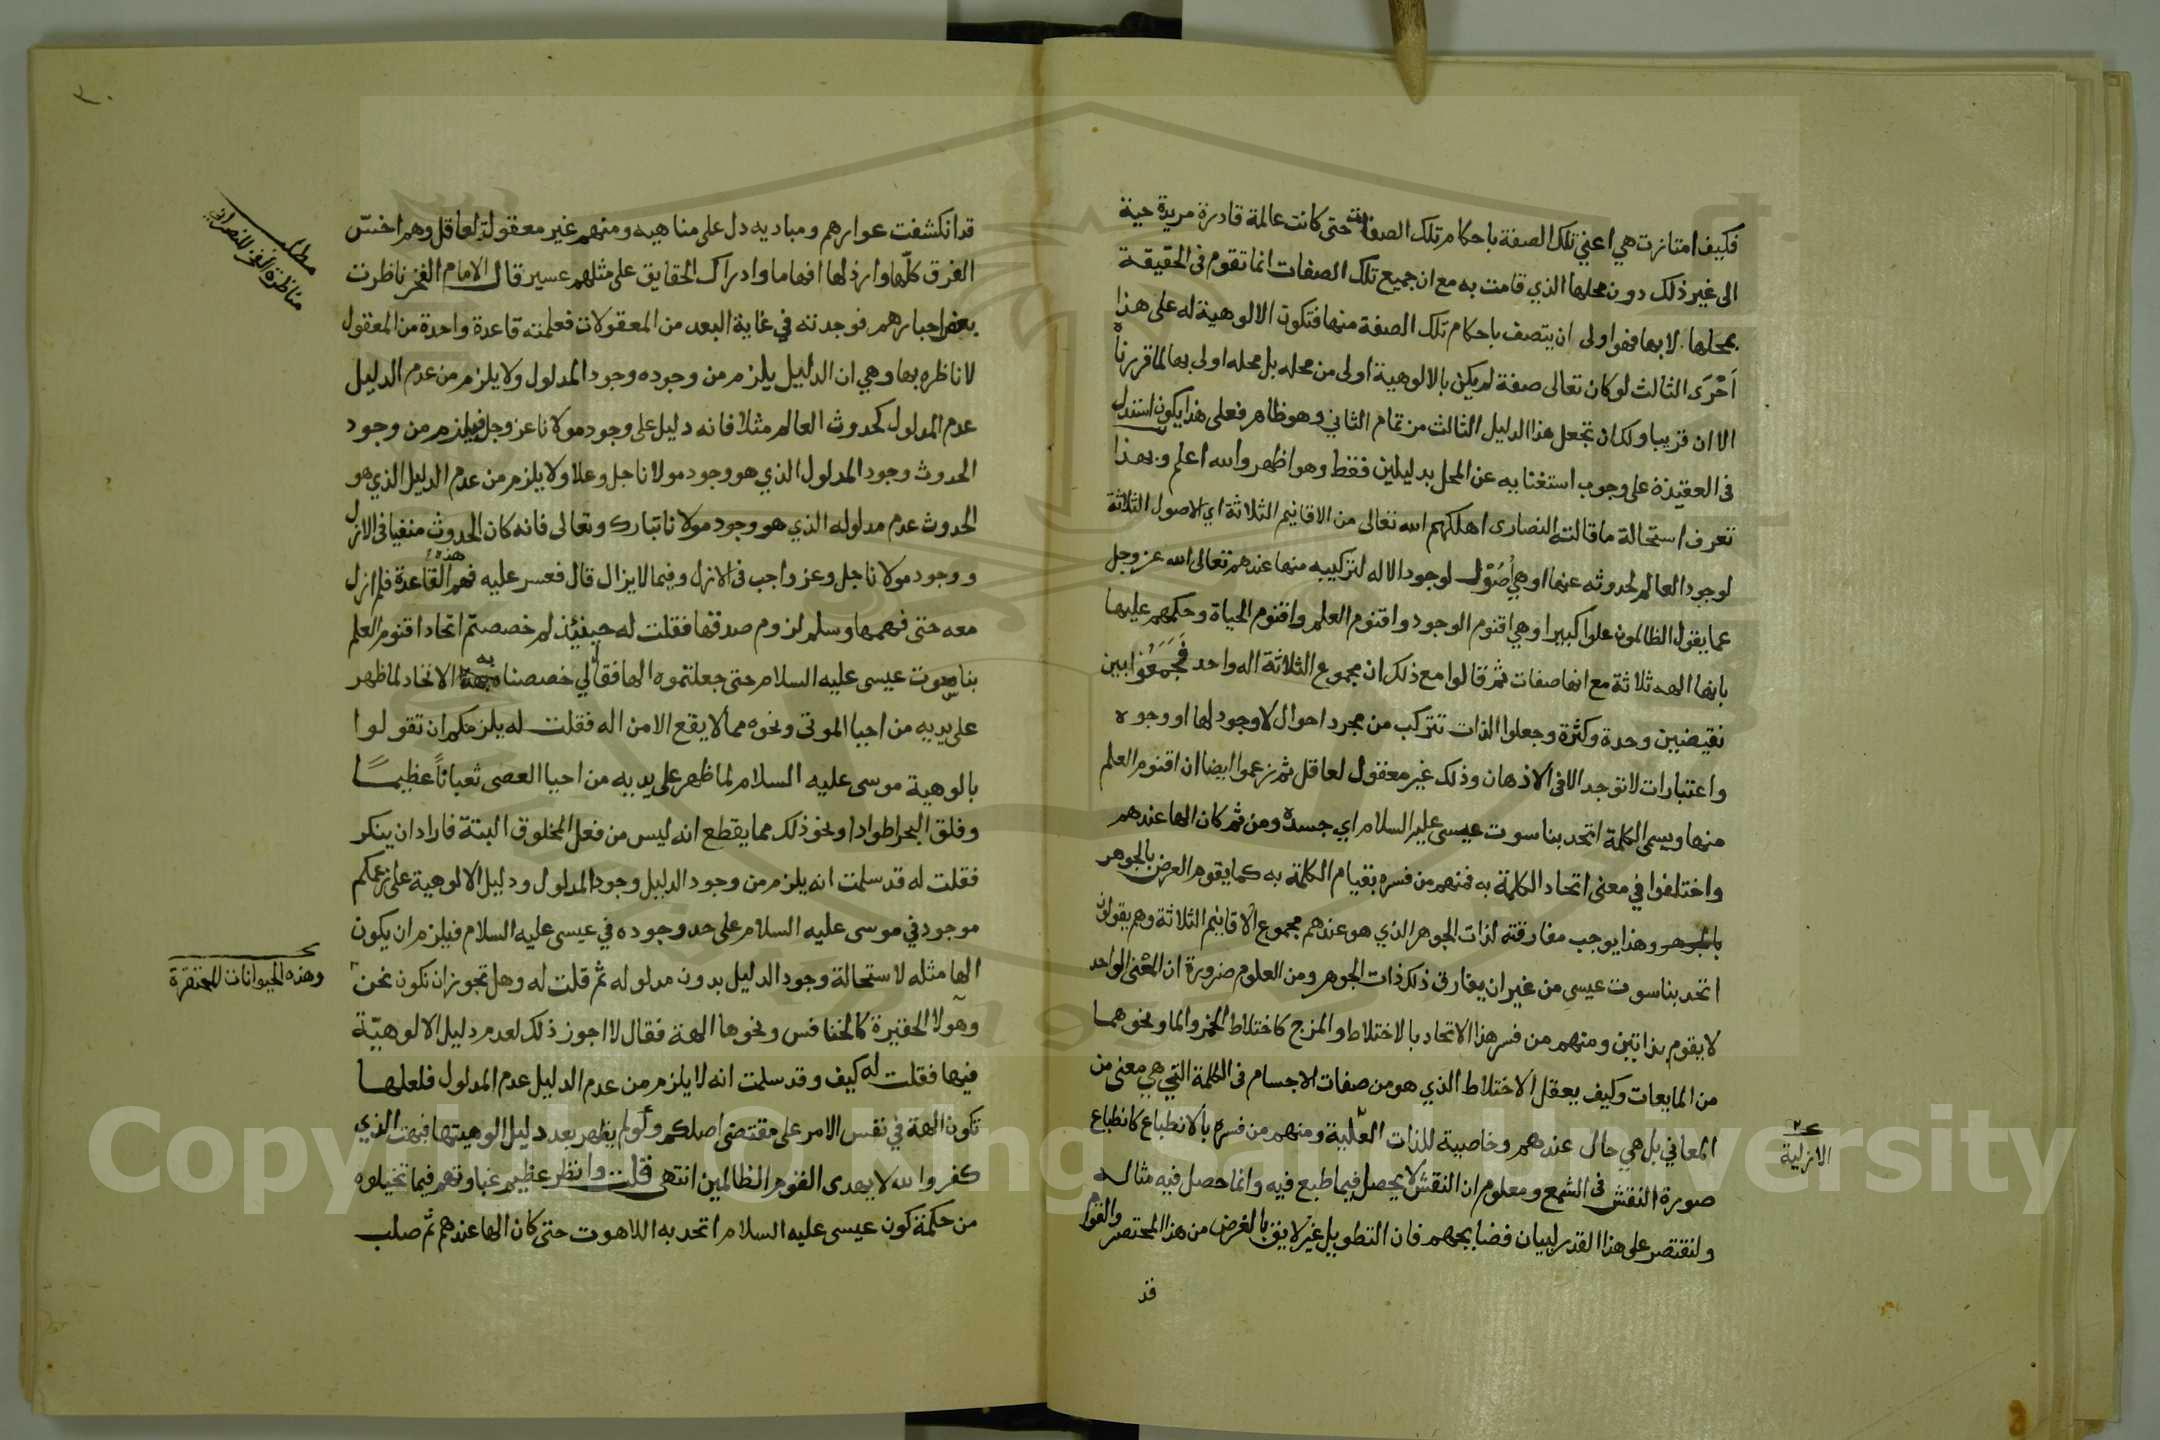 فكيف امتازت هي اعني تلك الصفة باحكام تلك الصفات حتى كانت عالمة قادرة مريدة حية
الى غير ذلك دون محلها الذي قامت به مع ان جميع تلك الصفات انما تقوم في الحقيقة
بمحلها لا بها فهو اولى ان يتصف باحكام تلك الصفة منها فتكون الالوهية له على هذا
اَحْرَى الثالث لو كان تعالى صفة لم يكن بالالوهية اولى من محله بل محله اولى بها لما قررناه
الا ان قريبا ولك ان تجعل هذا الدليل الثالث من تمام الثاني وهو ظاهر فعلى هذا يكون استدل
في العقيدة على وجوب استغنايه عن المحل بدليلين فقط وهو اظهر والله اعلم وبهذا
تعرف استحالة ما قالته النصارى اهلكهم الله تعالى من الاقانيم الثلاثة اي الاصول الثلاثة
لوجود العالم لحدوثه عنها او هي اُصُوْل لوجود الاله لتركيبه منها عندهم تعالى الله عز وجل
عما يقول الظالمون علوا كبيرا وهي اقنوم الوجود واقنوم العلم واقنوم الحياة وحكمهم عليها
بانها الهه ثلاثة مع انها صفات ثم قالوا مع ذلك ان مجموع الثلاثة اله واحد فَجَمَعُوْا بين
نقيضين وحدة وكثرة وجعلوا الذات تتركب من مجرد احوال لا وجود لها او وجوه
واعتبارات لا توجد الا في الاذهان وذلك غير معقول لعاقل ثم زعموا ايضا ان اقنوم العلم
منها ويسمى الكلمة اتحد بناسوت عيسى عليه السلام اي جسده ومن ثم كان الها عندهم
واختلفوا في معنى اتحاد الكلمة به فمنهم من فسره بقيام الكلمة به كما يقوم العرض بالجوهر
بالجوهر وهذا يوجب مفارقته لذات الجوهر الذي هو عندهم مجموع الاقانيم الثلاثة وهم يقولون
اتحد بناسوت عيسى من غير ان يفارق ذلك ذات الجوهر ومن العلوم ضرورة ان المعنى الواحد
لا يقوم بذاتين ومنهم من فسر هذا الاتحاد بالاختلاط والمزج كاختلاط الخمر والما ونحوهما
من المايعات وكيف يعقل الاختلاط الذي هو من صفات الاجسام في الكلمة التي هي معنى من
المعاني بل هي حال عندهم وخاصية للذات العلية ومنهم من فسره بالانطباع كانطباع
صورة النقش في الشمع ومعلوم ان النقش لا يحصل فيما طبع فيه وانما حصل فيه مثاله
ولنقتصر على هذا القدر لبيان فضايحهم فان التطويل غير لايق بالغرض من هذا المختصر والقوم
قد
ع
الازلية
٣٠
قد انكشفت عوارهم ومباديه دل على مناهيه ومنهم غير معقولة لعاقل وهم اخسّ
الفرق كلّها وارذلها افهاما وادراك الحقايق على مثلهم عسير قال الامام الفخر ناظرت
بعض احبارهم فوجدته في غاية البعد من المعقولات فعلمته قاعدة واحدة من المعقول
لاناظره بها وهي ان الدليل يلزم من وجوده وجود المدلول ولا يلزم من عدم الدليل
عدم المدلول كحدوث العالم مثلا فانه دليل على وجود مولانا عز وجل فيلزم من وجود
الحدوث وجود المدلول الذي هو وجود مولانا جل وعلا ولا يلزم من عدم الدليل الذي هو
الحدوث عدم مدلوله الذي هو وجود مولانا تبارك وتعالى فانه كان الحدوث منفيا في الازل
ووجود مولانا جل وعز واجب في الازل وفيما لا يزال قال فعسر عليه فهم هذه القاعدة فلم ازل
معه حتى فهمها وسلم لزوم صدقها فقلت له حينئذ لم خصصتم اتحاد اقنوم العلم
بناسوت عيسى عليه السلام حتى جعلتموه الها فقال لي خصصناه به الاتحاد لما ظهر
على يديه من احيا الموتى ونحوه مما لا يقع الا من اله فقلت له يلزمكم ان تقولوا
بالوهية موسى عليه السلام لما ظهر على يديه من احيا العصى ثعباناً عظيمًا
وفلق البحر اطوادا ونحو ذلك مما يقطع انه ليس من فعل المخلوق البتة فاراد ان ينكر
فقلت له قد سلمت انه يلزم من وجود الدليل وجود المدلول ودليل الالوهية على زعمكم
موجود في موسى عليه السلام على حد وجوده في عيسى عليه السلام فيلزم ان يكون
الها مثله لاستحالة وجود الدليل بدون مدلوله ثم قلت له وهل تجوز ان نكون نحن
وهولا الحقيرة كالخنافس ونحوها الهة فقال لا اجوز ذلك لعدم دليل الالوهيّة
فيها فقلت له كيف وقد سلمت انه لا يلزم من عدم الدليل عدم المدلول فلعلها
تكون الهة في نفس الامر على مقتضى اصلكم ولو لم يظهر بعد دليل الوهيتها فبهت الذي
كفر والله لا يهدى القوم الظالمين انتهى قلت وانظر عظيم غباوتهم فيما تخيلوه
من حكمة كون عيسى عليه السلام اتحد به اللاهوت حتى كان الها عندهم ثم صلب
مطلب
مناظرة الفخر للنصراني
وهذه الحيوانات المحتقرة
Copyright © King Saud University